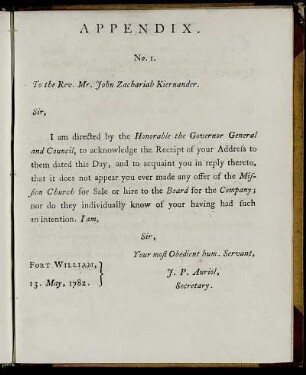 APPENDIX.
No. 1.
To the Rev. Mr. John Zachariah Kiernander.
Sir,
I am directed by the Honorable the Governor General
and Council, to acknowledge the Receipt of your Addreſs to
them dated this Day, and to acquaint you in reply thereto,
that it does not appear you ever made any offer of the Miſ-
ſion Church for Sale or hire to the Board for the Company;
nor do they individually know of your having had ſuch
an intention. I am,
Sir,
Your moſt Obedient hum. Servant,
FORT WILLIAM,
13. May, 1782.
J. P. Auriol,
Secretary.